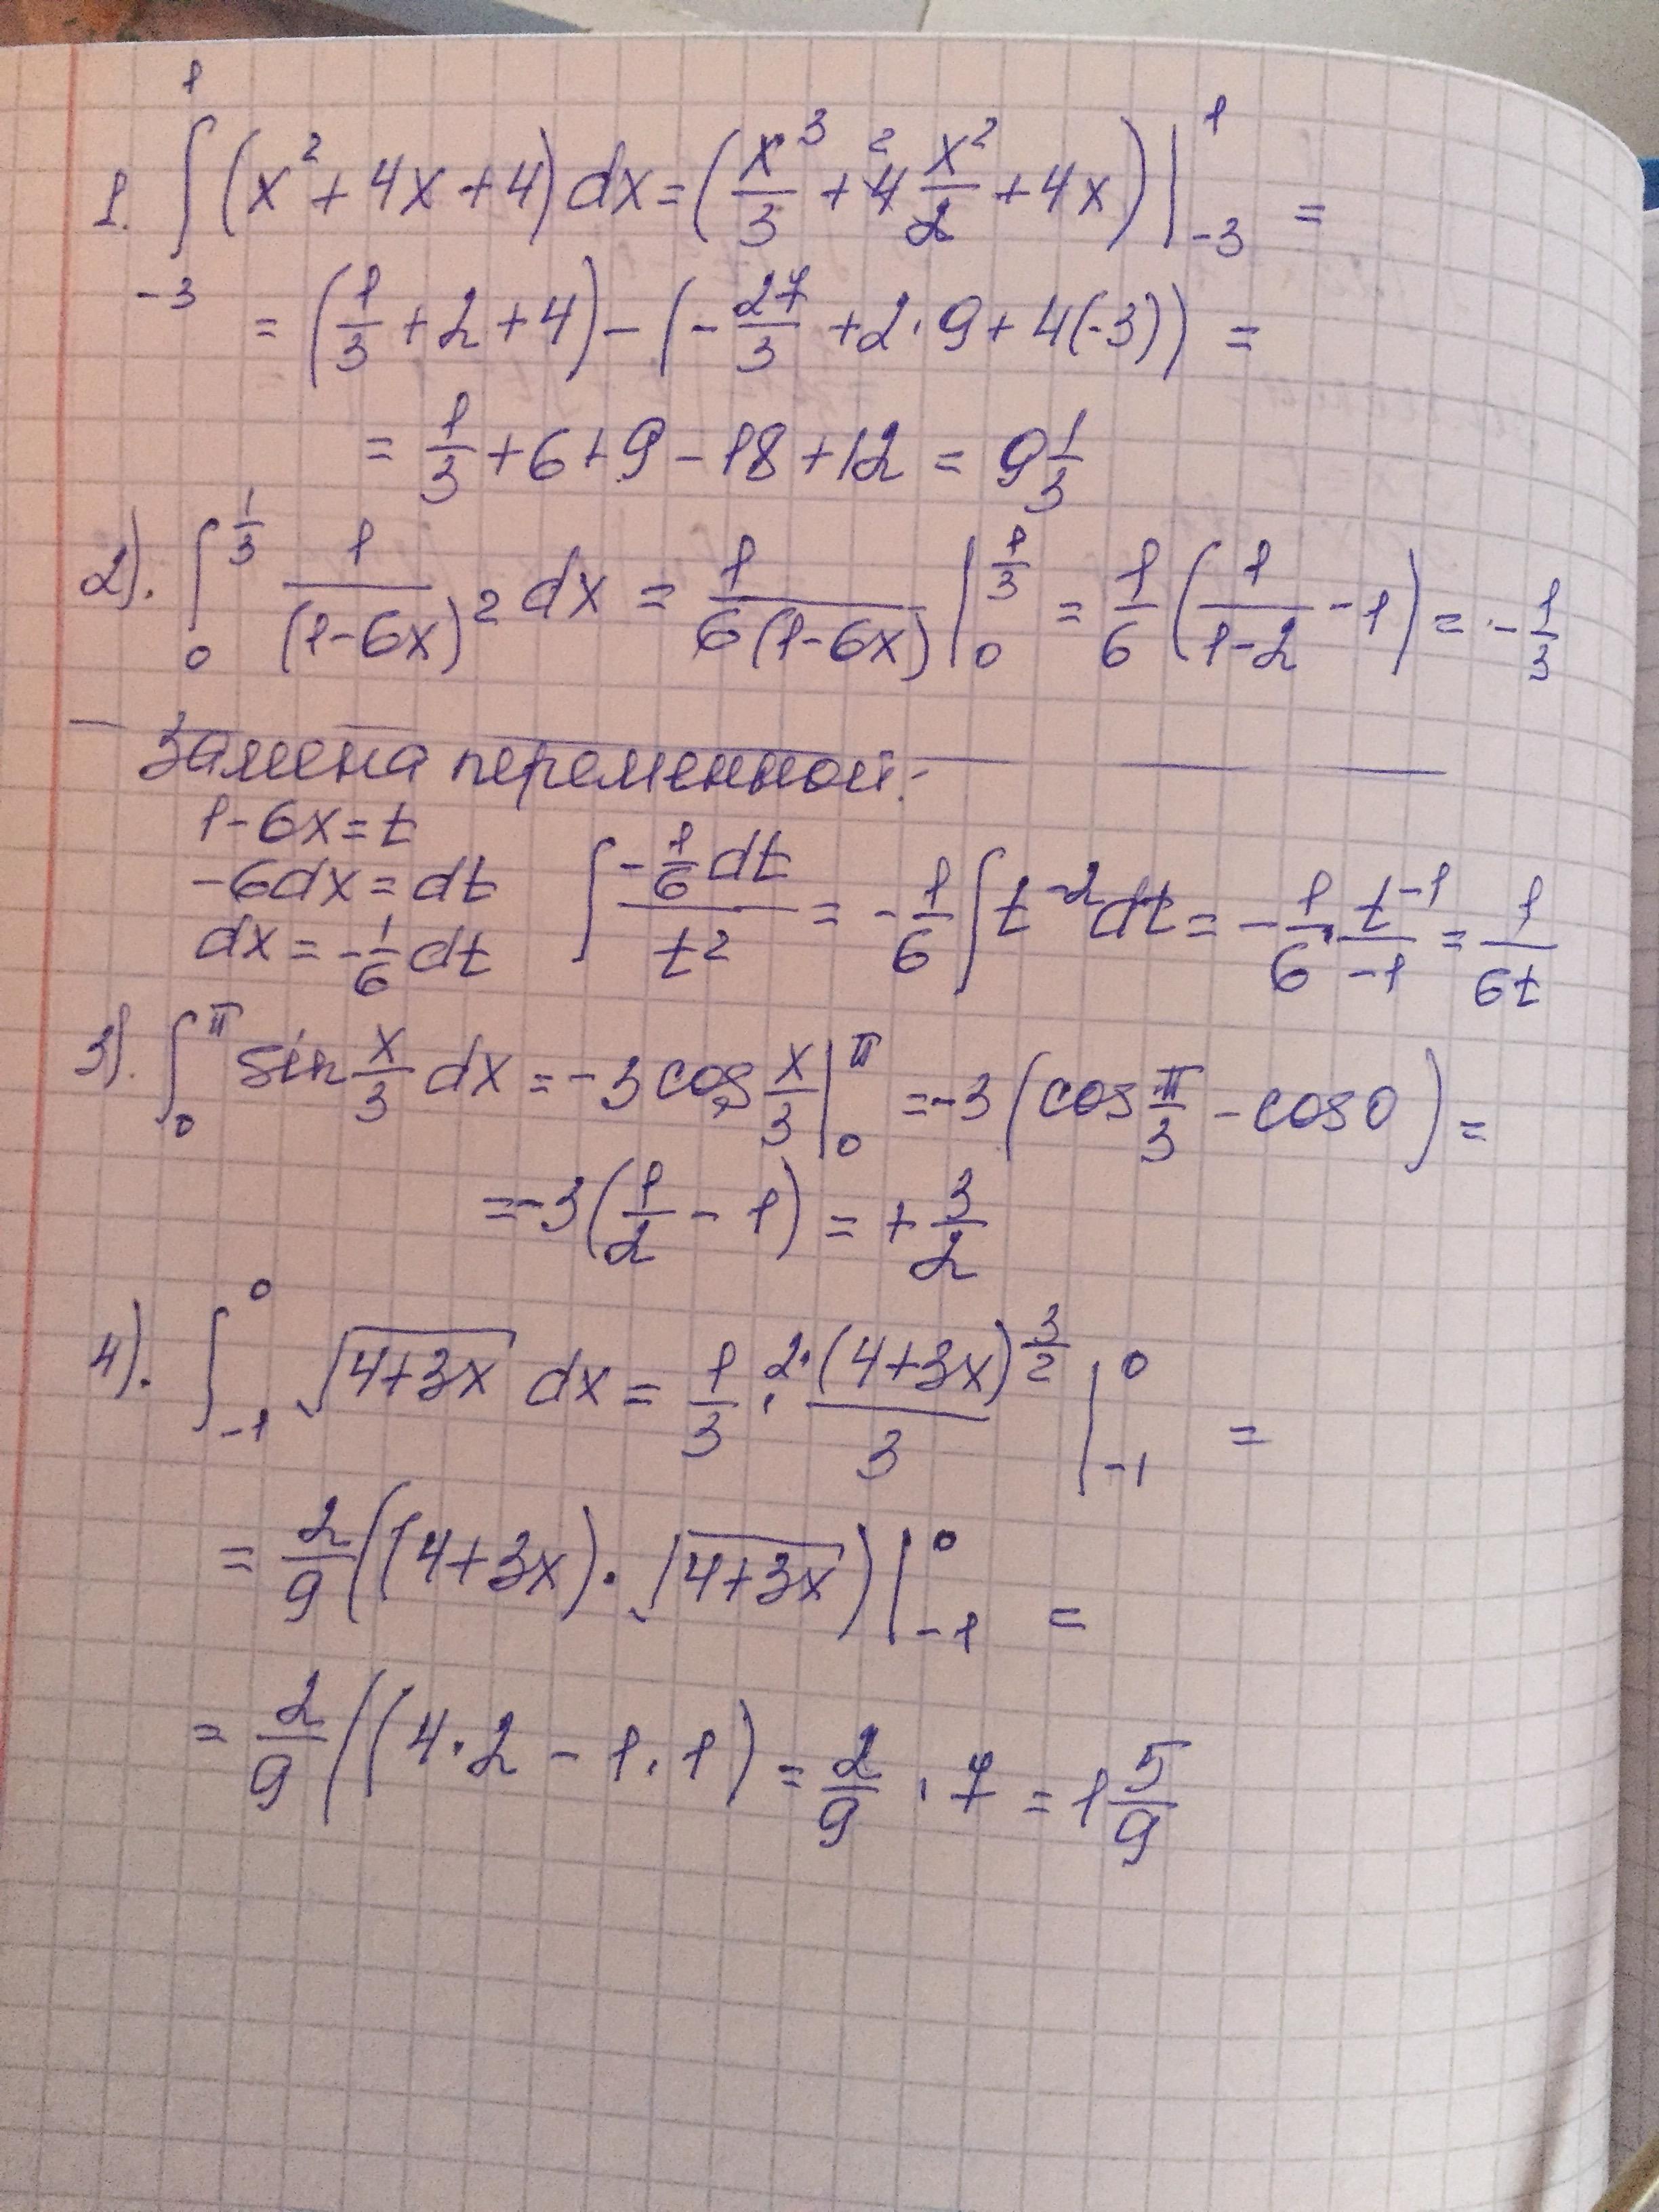 1. ∫₋₃¹ (x² + 4x + 4) dx = (x³/3 + 4 x²/2 + 4x) |₋₃¹ =
= (1/3 + 2 + 4) - (-27/3 + 2·9 + 4(-3)) =
= 1/3 + 6 + 9 - 18 + 12 = 9 1/3
2). ∫₀^(1/3) 1/(1-6x)² dx = 1/(6(1-6x)) |₀^(1/3) = 1/6 (1/(1-2) - 1) = -1/3
Замена переменной:
1-6x = t
-6dx = dt
dx = -1/6 dt
∫ (-1/6 dt)/t² = -1/6 ∫ t⁻² dt = -1/6 · t⁻¹/-1 = 1/(6t)
3). ∫₀^π sin x/3 dx = -3 cos x/3 |₀^π = -3 (cos π/3 - cos 0) =
= -3 (1/2 - 1) = + 3/2
4). ∫₋₁⁰ √(4+3x) dx = 1/3 · 2·(4+3x)^(3/2)/3 |₋₁⁰ =
= 2/9 ((4+3x) · √(4+3x)) |₋₁⁰ =
= 2/9 ((4·2 - 1·1) = 2/9 · 7 = 1 5/9